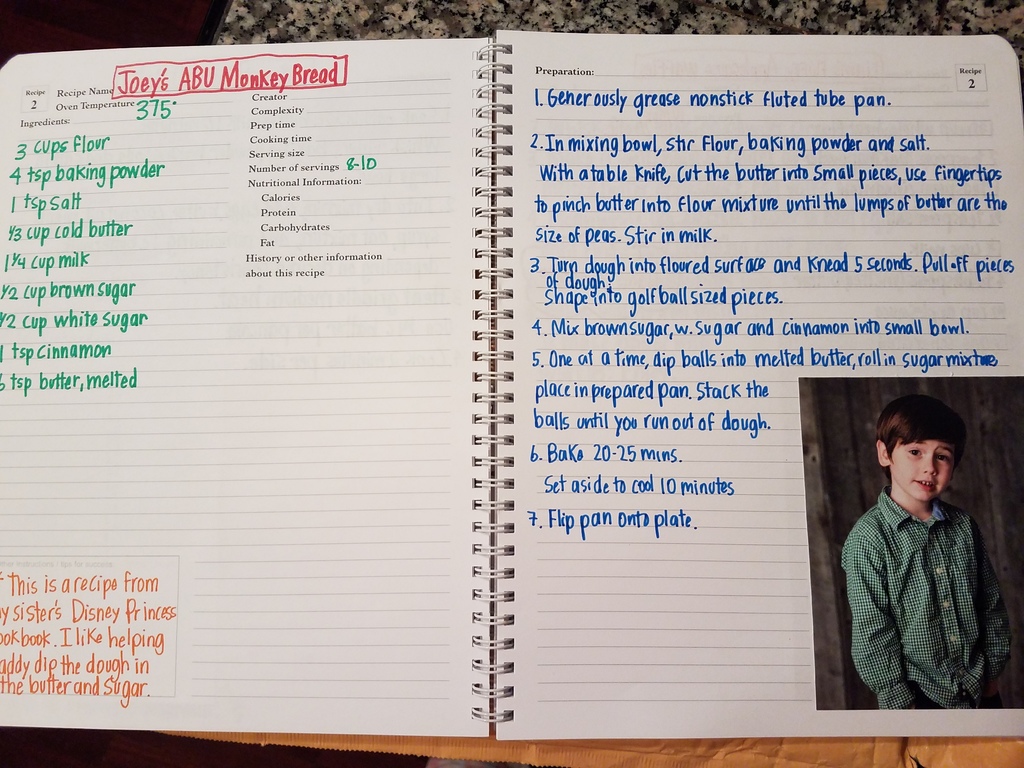 Joey's ABU Monkey Bread
Recipe
2
Recipe Name
Oven Temperature 375°
Ingredients:
3 cups flour
4 tsp baking powder
1 tsp salt
1/3 cup cold butter
1 1/4 cup milk
1/2 cup brown sugar
1/2 cup white sugar
1 tsp cinnamon
6 tsp butter, melted
Creator
Complexity
Prep time
Cooking time
Serving size
Number of servings 8-10
Nutritional Information:
Calories
Protein
Carbohydrates
Fat
History or other information
about this recipe
other instructions / tips for success
This is a recipe from
y sister's Disney Princess
ookbook. I like helping
addy dip the dough in
the butter and sugar.
Preparation:
Recipe
2
1. Generously grease nonstick fluted tube pan.
2. In mixing bowl, stir flour, baking powder and salt.
With a table knife, cut the butter into small pieces, use fingertips
to pinch butter into flour mixture until the lumps of butter are the
size of peas. Stir in milk.
3. Turn dough into floured surface and knead 5 seconds. Pull off pieces
of dough,
shape into golf ball sized pieces.
4. Mix brown sugar, w. sugar and cinnamon into small bowl.
5. One at a time, dip balls into melted butter, roll in sugar mixture
place in prepared pan. Stack the
balls until you run out of dough.
6. Bake 20-25 mins.
Set aside to cool 10 minutes
7. Flip pan onto plate.